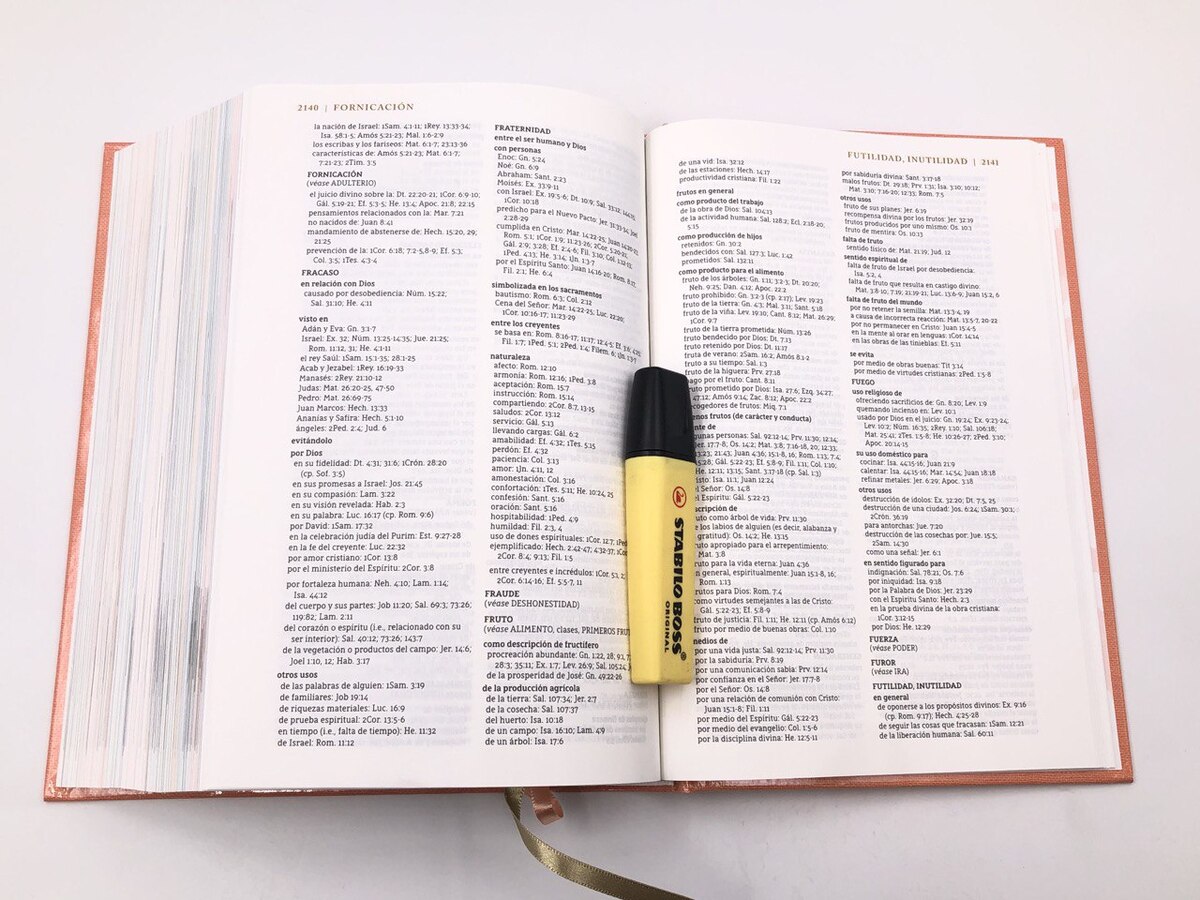 2140 | FORNICACIÓN
la nación de Israel: 1Sam. 4:1-11; 1Rey. 13:33-34;
Isa. 58:1-5; Amós 5:21-23; Mal. 1:6-2:9
los escribas y los fariseos: Mat. 6:1-7; 23:13-36
características de: Amós 5:21-23; Mat. 6:1-7;
7:21-23; 2Tim. 3:5
FORNICACIÓN
(véase ADULTERIO)
el juicio divino sobre la: Dt. 22:20-21; 1Cor. 6:9-10;
Gál. 5:19-21; Ef. 5:3-5; He. 13:4; Apoc. 21:8, 22:15
pensamientos relacionados con la: Mar. 7:21
no nacidos de: Juan 8:41
mandamiento de abstenerse de: Hech. 15:20, 29;
21:25
prevención de la: 1Cor. 6:18; 7:2-5,8-9; Ef. 5:3;
Col. 3:5; 1Tes. 4:3-4
FRACASO
en relación con Dios
causado por desobediencia: Núm. 15:22;
Sal. 31:10; He. 4:11
visto en
Adán y Eva: Gn. 3:1-7
Israel: Ex. 32; Núm. 13:25-14:35; Jue. 21:25;
Rom. 11:12, 31; He. 4:1-11
el rey Saúl: 1Sam. 15:1-35; 28:1-25
Acab y Jezabel: 1Rey. 16:19-33
Manasés: 2Rey. 21:10-12
Judas: Mat. 26:20-25, 47-50
Pedro: Mat. 26:69-75
Juan Marcos: Hech. 13:33
Ananías y Safira: Hech. 5:1-10
ángeles: 2Ped. 2:4; Jud. 6
evitándolo
por Dios
en su fidelidad: Dt. 4:31, 31:6; 1Crón. 28:20
(cp. Sof. 3:5)
en sus promesas a Israel: Jos. 21:45
en su compasión: Lam. 3:22
en su visión revelada: Hab. 2:3
en su palabra: Luc. 16:17 (cp. Rom. 9:6)
por David: 1Sam. 17:32
en la celebración judía del Purim: Est. 9:27-28
en la fe del creyente: Luc. 22:32
por amor cristiano: 1Cor. 13:8
por el ministerio del Espíritu: 2Cor. 3:8
por fortaleza humana: Neh. 4:10; Lam. 1:14;
Isa. 44:12
del cuerpo y sus partes: Job 11:20; Sal. 69:3; 73:26;
119:82; Lam. 2:11
del corazón o espíritu (i.e., relacionado con su
ser interior): Sal. 40:12; 73:26; 143:7
de la vegetación o productos del campo: Jer. 14:6;
Joel 1:10, 12; Hab. 3:17
otros usos
de las palabras de alguien: 1Sam. 3:19
de familiares: Job 19:14
de riquezas materiales: Luc. 16:9
de prueba espiritual: 2Cor. 13:5-6
en tiempo (i.e., falta de tiempo): He. 11:32
de Israel: Rom. 11:12
FRATERNIDAD
entre el ser humano y Dios
con personas
Enoc: Gn. 5:24
Noé: Gn. 6:9
Abraham: Sant. 2:23
Moisés. Ex. 33:9-11
con Israel. Ex. 19:5-6; Dt. 10:9; Sal. 33:12;
1Cor. 10:18
predicho para el Nuevo Pacto: Jer. 31:33-34; Joel
2:28-29
cumplida en Cristo: Mar. 14:22-25; Juan 14:20-23;
Rom. 5:1; 1Cor. 1:9; 11:23-26; 2Cor. 5:20-21;
Gál. 2:9; 3:28; Ef. 2:4-6; Fil. 3:10; Col. 1:12-13;
1Ped. 4:13; He. 3:14; 1Jn. 1:3-7
por el Espíritu Santo: Juan 14:16-20; Rom. 8:17;
Fil. 2:1; He. 6:4
simbolizada en los sacramentos
bautismo: Rom. 6:3; Col. 2:12
Cena del Señor: Mar. 14:22-25; Luc. 22:20;
1Cor. 10:16-17; 11:23-29
entre los creyentes
se basa en: Rom. 8:16-17, 11:17; 12:4-5; Ef. 3:6;
Fil. 1:7; 1Ped. 5:1; 2Ped. 1:4; Filem. 6; 1Jn. 1:3-7
naturaleza
afecto: Rom. 12:10
armonía: Rom. 12:16; 1Ped. 3:8
aceptación: Rom. 15:7
instrucción: Rom. 15:14
compartiendo: 2Cor. 8:7, 13-15
saludos: 2Cor. 13:12
servicio: Gál. 5:13
llevando cargas: Gál. 6:2
amabilidad: Ef. 4:32; 1Tes. 5:15
perdón: Ef. 4:32
paciencia: Col. 3:13
amor: 1Jn. 4:11, 12
amonestación: Col. 3:16
confortación: 1Tes. 5:11; He. 10:24, 25
confesión: Sant. 5:16
oración: Sant. 5:16
hospitabilidad: 1Ped. 4:9
humildad: Fil. 2:3, 4
uso de dones espirituales: 1Cor. 12:7, 1Ped
ejemplificado: Hech. 2:42-47; 4:32-37, 1Co
2Cor. 8:4; 9:13; Fil. 1:5
entre creyentes e incrédulos: 1Cor. 5:1, 2;
2Cor. 6:14-16; Ef. 5:5-7, 11
FRAUDE
(véase DESHONESTIDAD)
FRUTO
(véase ALIMENTO, clases, PRIMEROS FRUT
como descripción de fructífero
procreación abundante: Gn. 1:22, 28; 9:1, 7;
28:3; 35:11; Ex. 1:7; Lev. 26:9; Sal. 105:24;
de la prosperidad de José: Gn. 49:22-26
de la producción agrícola
de la tierra: Sal. 107:34; Jer. 2:7
de la cosecha: Sal. 107:37
del huerto: Isa. 10:18
de un campo: Isa. 16:10; Lam. 4:9
de un árbol: Isa. 17:6
FUTILIDAD, INUTILIDAD | 2141
de una vid: Isa. 32:12
de las estaciones: Hech. 14:17
productividad cristiana: Fil. 1:22
frutos en general
como producto del trabajo
de la obra de Dios: Sal. 104:13
de la actividad humana: Sal. 128:2; Ecl. 2:18-20;
5:15
como producción de hijos
retenidos: Gn. 30:2
bendecidos con: Sal. 127:3; Luc. 1:42
prometidos: Sal. 132:11
como producto para el alimento
fruto de los árboles: Gn. 1:11; 3:2-3; Dt. 20:20;
Neh. 9:25; Dan. 4:12; Apoc. 22:2
fruto prohibido: Gn. 3:2-3 (cp. 2:17); Lev. 19:23
fruto de la tierra: Gn. 4:3; Mal. 3:11; Sant. 5:18
fruto de la viña: Lev. 19:10; Cant. 8:12; Mat. 26:29;
1Cor. 9:7
fruto de la tierra prometida: Núm. 13:26
fruto bendecido por Dios: Dt. 7:13
fruto retenido por Dios: Dt. 11:17
fruta de verano: 2Sam. 16:2; Amós 8:1-2
fruto a su tiempo: Sal. 1:3
fruto de la higuera: Prv. 27:18
pago por el fruto: Cant. 8:11
fruto prometido por Dios: Isa. 27:6; Ezq. 34:27;
47:12; Amós 9:14; Zac. 8:12; Apoc. 22:2
recogedores de frutos: Miq. 7:1
enos frutos (de carácter y conducta)
nte de
gunas personas: Sal. 92:12-14; Prv. 11:30, 12:14;
Jer. 17:7-8; Os. 14:2; Mat. 3:8, 7:16-18, 20, 12:33,
13:23, 21:43; Juan 4:36; 15:1-8, 16, Rom. 1:13, 7:4;
15:28; Gál. 5:22-23; Ef. 5:8-9, Fil. 1:11; Col. 1:10;
He. 12:11; 13:15, Sant. 3:17-18 (cp. Sal. 1:3)
isto: Isa. 11:1; Juan 12:24
el Señor: Os. 14:8
el Espíritu: Gál. 5:22-23
scripción de
uto como árbol de vida: Prv. 11:30
e los labios de alguien (es decir, alabanza y
gratitud): Os. 14:2; He. 13:15
uto apropiado para el arrepentimiento:
Mat. 3:8
uto para la vida eterna: Juan 4:36
n general, espiritualmente: Juan 15:1-8, 16;
Rom. 1:13
rutos para Dios: Rom. 7:4
como virtudes semejantes a las de Cristo:
Gál. 5:22-23; Ef. 5:8-9
fruto de justicia: Fil. 1:11; He. 12:11 (cp. Amós 6:12)
fruto por medio de buenas obras: Col. 1:10
medios de
por una vida justa: Sal. 92:12-14; Prv. 11:30
por la sabiduría: Prv. 8:19
por una comunicación sabia: Prv. 12:14
por confianza en el Señor: Jer. 17:7-8
por el Señor: Os. 14:8
por una relación de comunión con Cristo:
Juan 15:1-8; Fil. 1:11
por medio del Espíritu: Gál. 5:22-23
por medio del evangelio: Col. 1:5-6
por la disciplina divina: He. 12:5-11
por sabiduría divina: Sant. 3:17-18
malos frutos: Dt. 29:18; Prv. 1:31, Isa. 3:10; 10:12;
Mat. 3:10; 7:16-20; 12:33; Rom. 7:5
otros usos
fruto de sus planes: Jer. 6:19
recompensa divina por los frutos: Jer. 32:19
frutos producidos por uno mismo: Os. 10:1
fruto de mentira: Os. 10:13
falta de fruto
sentido físico de: Mat. 21:19; Jud. 12
sentido espiritual de
falta de fruto de Israel por desobediencia:
Isa. 5:2, 4
falta de fruto que resulta en castigo divino:
Mat. 3:8-10, 7:19; 21:19-21; Luc. 13:6-9; Juan 15:2, 6
falta de fruto del mundo
por no retener la semilla: Mat. 13:3-4, 19
a causa de incorrecta reacción: Mat. 13:5-7, 20-22
por no permanecer en Cristo: Juan 15:4-5
en la mente al orar en lenguas: 1Cor. 14:14
en las obras de las tinieblas: Ef. 5:11
se evita
por medio de obras buenas: Tit 3:14
por medio de virtudes cristianas: 2Ped. 1:5-8
FUEGO
uso religioso de
ofreciendo sacrificios de: Gn. 8:20; Lev. 1:9
quemando incienso en: Lev. 10:1
usado por Dios en el juicio: Gn. 19:24; Ex. 9:23-24;
Lev. 10:2; Núm. 16:35, 2Rey. 1:10, Sal. 106:18;
Mat. 25:41; 2Tes. 1:5-8; He. 10:26-27; 2Ped. 3:10;
Apoc. 20:14-15
su uso doméstico para
cocinar: Isa. 44:15-16; Juan 21:9
calentar: Isa. 44:15-16; Mar. 14:54; Juan 18:18
refinar metales: Jer. 6:29; Apoc. 3:18
otros usos
destrucción de ídolos: Ex. 32:20; Dt. 7:5, 25
destrucción de una ciudad: Jos. 6:24; 1Sam. 30:1;
2Crón. 36:19
para antorchas: Jue. 7:20
destrucción de las cosechas por: Jue. 15:5;
2Sam. 14:30
como una señal: Jer. 6:1
en sentido figurado para
indignación: Sal. 78:21; Os. 7:6
por iniquidad: Isa. 9:18
por la Palabra de Dios: Jer. 23:29
con el Espíritu Santo: Hech. 2:3
en la prueba divina de la obra cristiana:
1Cor. 3:12-15
por Dios: He. 12:29
FUERZA
(véase PODER)
FUROR
(véase IRA)
FUTILIDAD, INUTILIDAD
en general
de oponerse a los propósitos divinos: Ex. 9:16
(cp. Rom. 9:17); Hech. 4:25-28
de seguir las cosas que fracasan: 1Sam. 12:21
de la liberación humana: Sal. 60:11
STABILO BOSS®
ORIGINAL